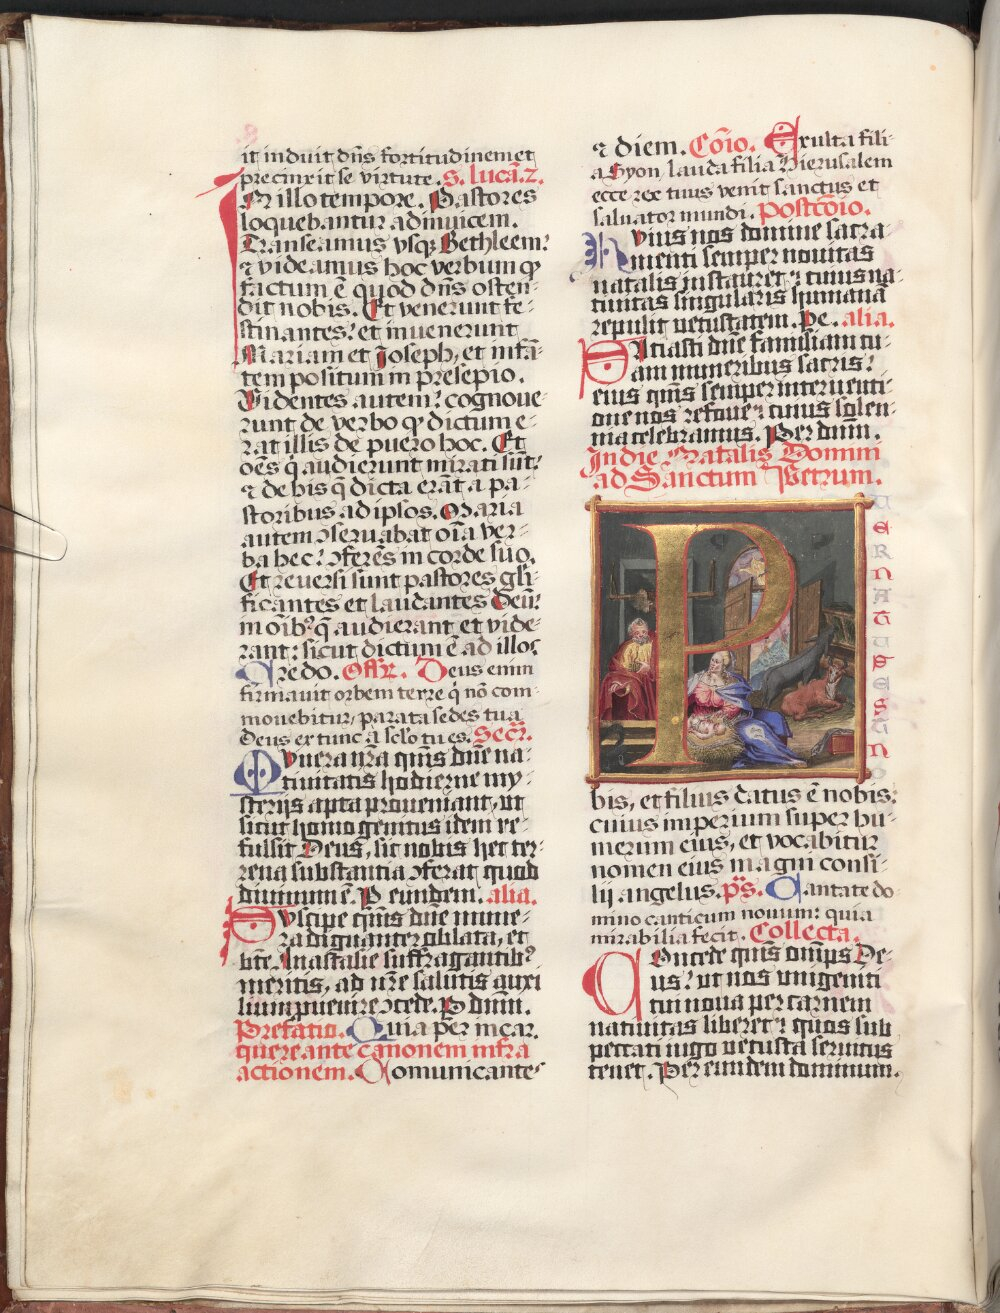 it induit dn̄s fortitudinem et
precinxit se virtute. S. lucā. 2.
In illo tempore. Pastores
loquebantur adinuicem.
Transeamus vsq; Bethleem:
⁊ videamus hoc verbum qđ
factum ē quod dn̄s osten-
dit nobis. Et venerunt fe-
stinantes: et inuenerunt
Mariam et Joseph, et infā-
tem positum in presepio.
Videntes autem: cognoue-
runt de verbo qđ dictum e-
rat illis de puero hoc. Et
oēs q̄ audierunt mirati sūt:
⁊ de his q̄ dicta erāt a pa-
storibus ad ipsos. Maria
autem ɔseruabat oīa ver-
ba hec: ɔferēs in corde suo.
Et reuersi sunt pastores glī-
ficantes et laudantes Deū:
in oīb; q̄ audierant et vide-
rant: sicut dictum ē ad illos
Credo. Offr. Deus enim
firmauit orbem terre q̄ nō com-
mouebitur, parata sedes tua
Deus ex tunc a sclo tu es. Secr.
Munera nr̄a quīs dn̄e na-
tiuitatis hodierne my-
sterijs apta proueniant, ut
sicut homo genitus idem re-
fulsit Deus, sic nobis hec ter-
rena substantia ɔferat quod
diuinum ē. P eundem. alia.
Suscipe quīs dn̄e mune-
ra dignanter oblata, et
bt̄e Anastasie suffragantib9
meritis, ad nr̄e salutis auxi
lium puenire ɔcede. P dnm̄.
Prefatio. Quia per incar.
quere ante canonem infra
actionem. Comunicantes
⁊ diem. Cōio. Exulta fili-
a Syon, lauda filia Hierusalem
ecce rex tuus venit sanctus et
saluator mundi. Postcōio.
Huius nos domine sacra-
menti semper nouitas
natalis instauret: cuius na-
tiuitas singularis humanā
repulit uetustatem. Pe. alia.
Satiasti dn̄e familiam tu-
am muneribus sacris:
eius quīs semper interuenti-
one nos refoue: cuius solen-
nia celebramus. Per dnm̄.
In die Natalis Domini
ad Sanctum Petrum.
P
VERNATUSESTNO
bis, et filius datus ē nobis:
cuius imperium super hu-
merum eius, et vocabitur
nomen eius magni consi-
lij angelus. ps. Cantate do-
mino canticum nouum: quia
mirabilia fecit. Collecta.
Concede quīs omps̄ De-
us: ut nos unigeniti
tui noua per carnem
natiuitas liberet: quos sub
peccati iugo uetusta seruitus
tenet. Per eundem dominum.